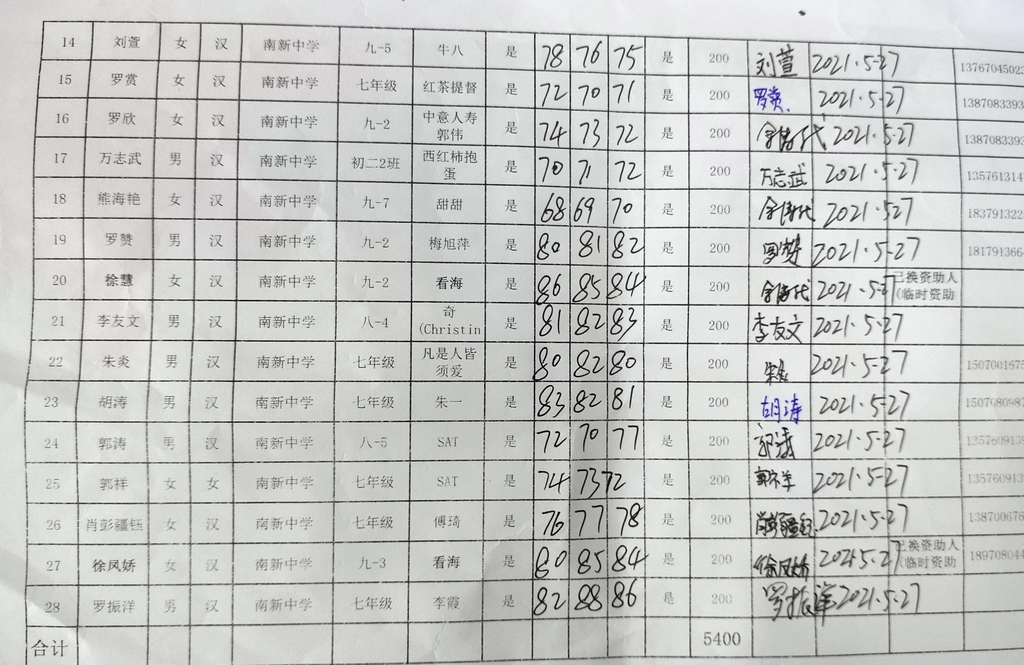 14 刘萱 女 汉 南新中学 九-5 牛八 是 78 76 75 是 200 刘萱 2021.5-27 13767045023
15 罗赏 女 汉 南新中学 七年级 红茶提督 是 72 70 71 是 200 罗赏 2021.5-27 1387083393
16 罗欣 女 汉 南新中学 九-2 中意人寿 是 74 73 72 是 200 2021.5-27 1387083393
郭伟
17 万志武 男 汉 南新中学 初二2班 西红柿抱 是 70 71 72 是 200 万志武 2021.5-27 135761314
蛋
18 熊海艳 女 汉 南新中学 九-7 甜甜 是 68 69 70 是 200 2021.5-27 183791322
19 罗赞 男 汉 南新中学 九-2 梅旭萍 是 80 81 82 是 200 罗赞 2021.5-27 181791366
20 徐慧 女 汉 南新中学 九-2 看海 是 86 85 84 是 200 2021.5-27 已换资助人
(临时资助
21 李友文 男 汉 南新中学 八-4 奇 是 81 82 83 是 200 李友文 2021.5-27
(Christin
22 朱炎 男 汉 南新中学 七年级 凡是人皆 是 80 82 80 是 200 朱炎 2021.5-27 1507001675
须爱
23 胡涛 男 汉 南新中学 七年级 朱一 是 83 82 81 是 200 胡涛 2021.5-27 1507080987
24 郭涛 男 汉 南新中学 八-5 SAT 是 72 70 77 是 200 郭涛 2021.5-27 1357609139
25 郭祥 女 女 南新中学 七年级 SAT 是 74 73 72 是 200 郭祥 2021.5-27 1357609137
26 肖彭疆钰 女 汉 南新中学 七年级 傅琦 是 76 77 78 是 200 肖彭疆钰 2021.5-27 138700676
27 徐凤娇 女 汉 南新中学 九-3 看海 是 80 85 84 是 200 徐凤娇 20215.27 已换资助人 189708044
(临时资助
28 罗振洋 男 汉 南新中学 七年级 李霞 是 82 88 86 是 200 罗振洋 2021.5-27
合计 5400